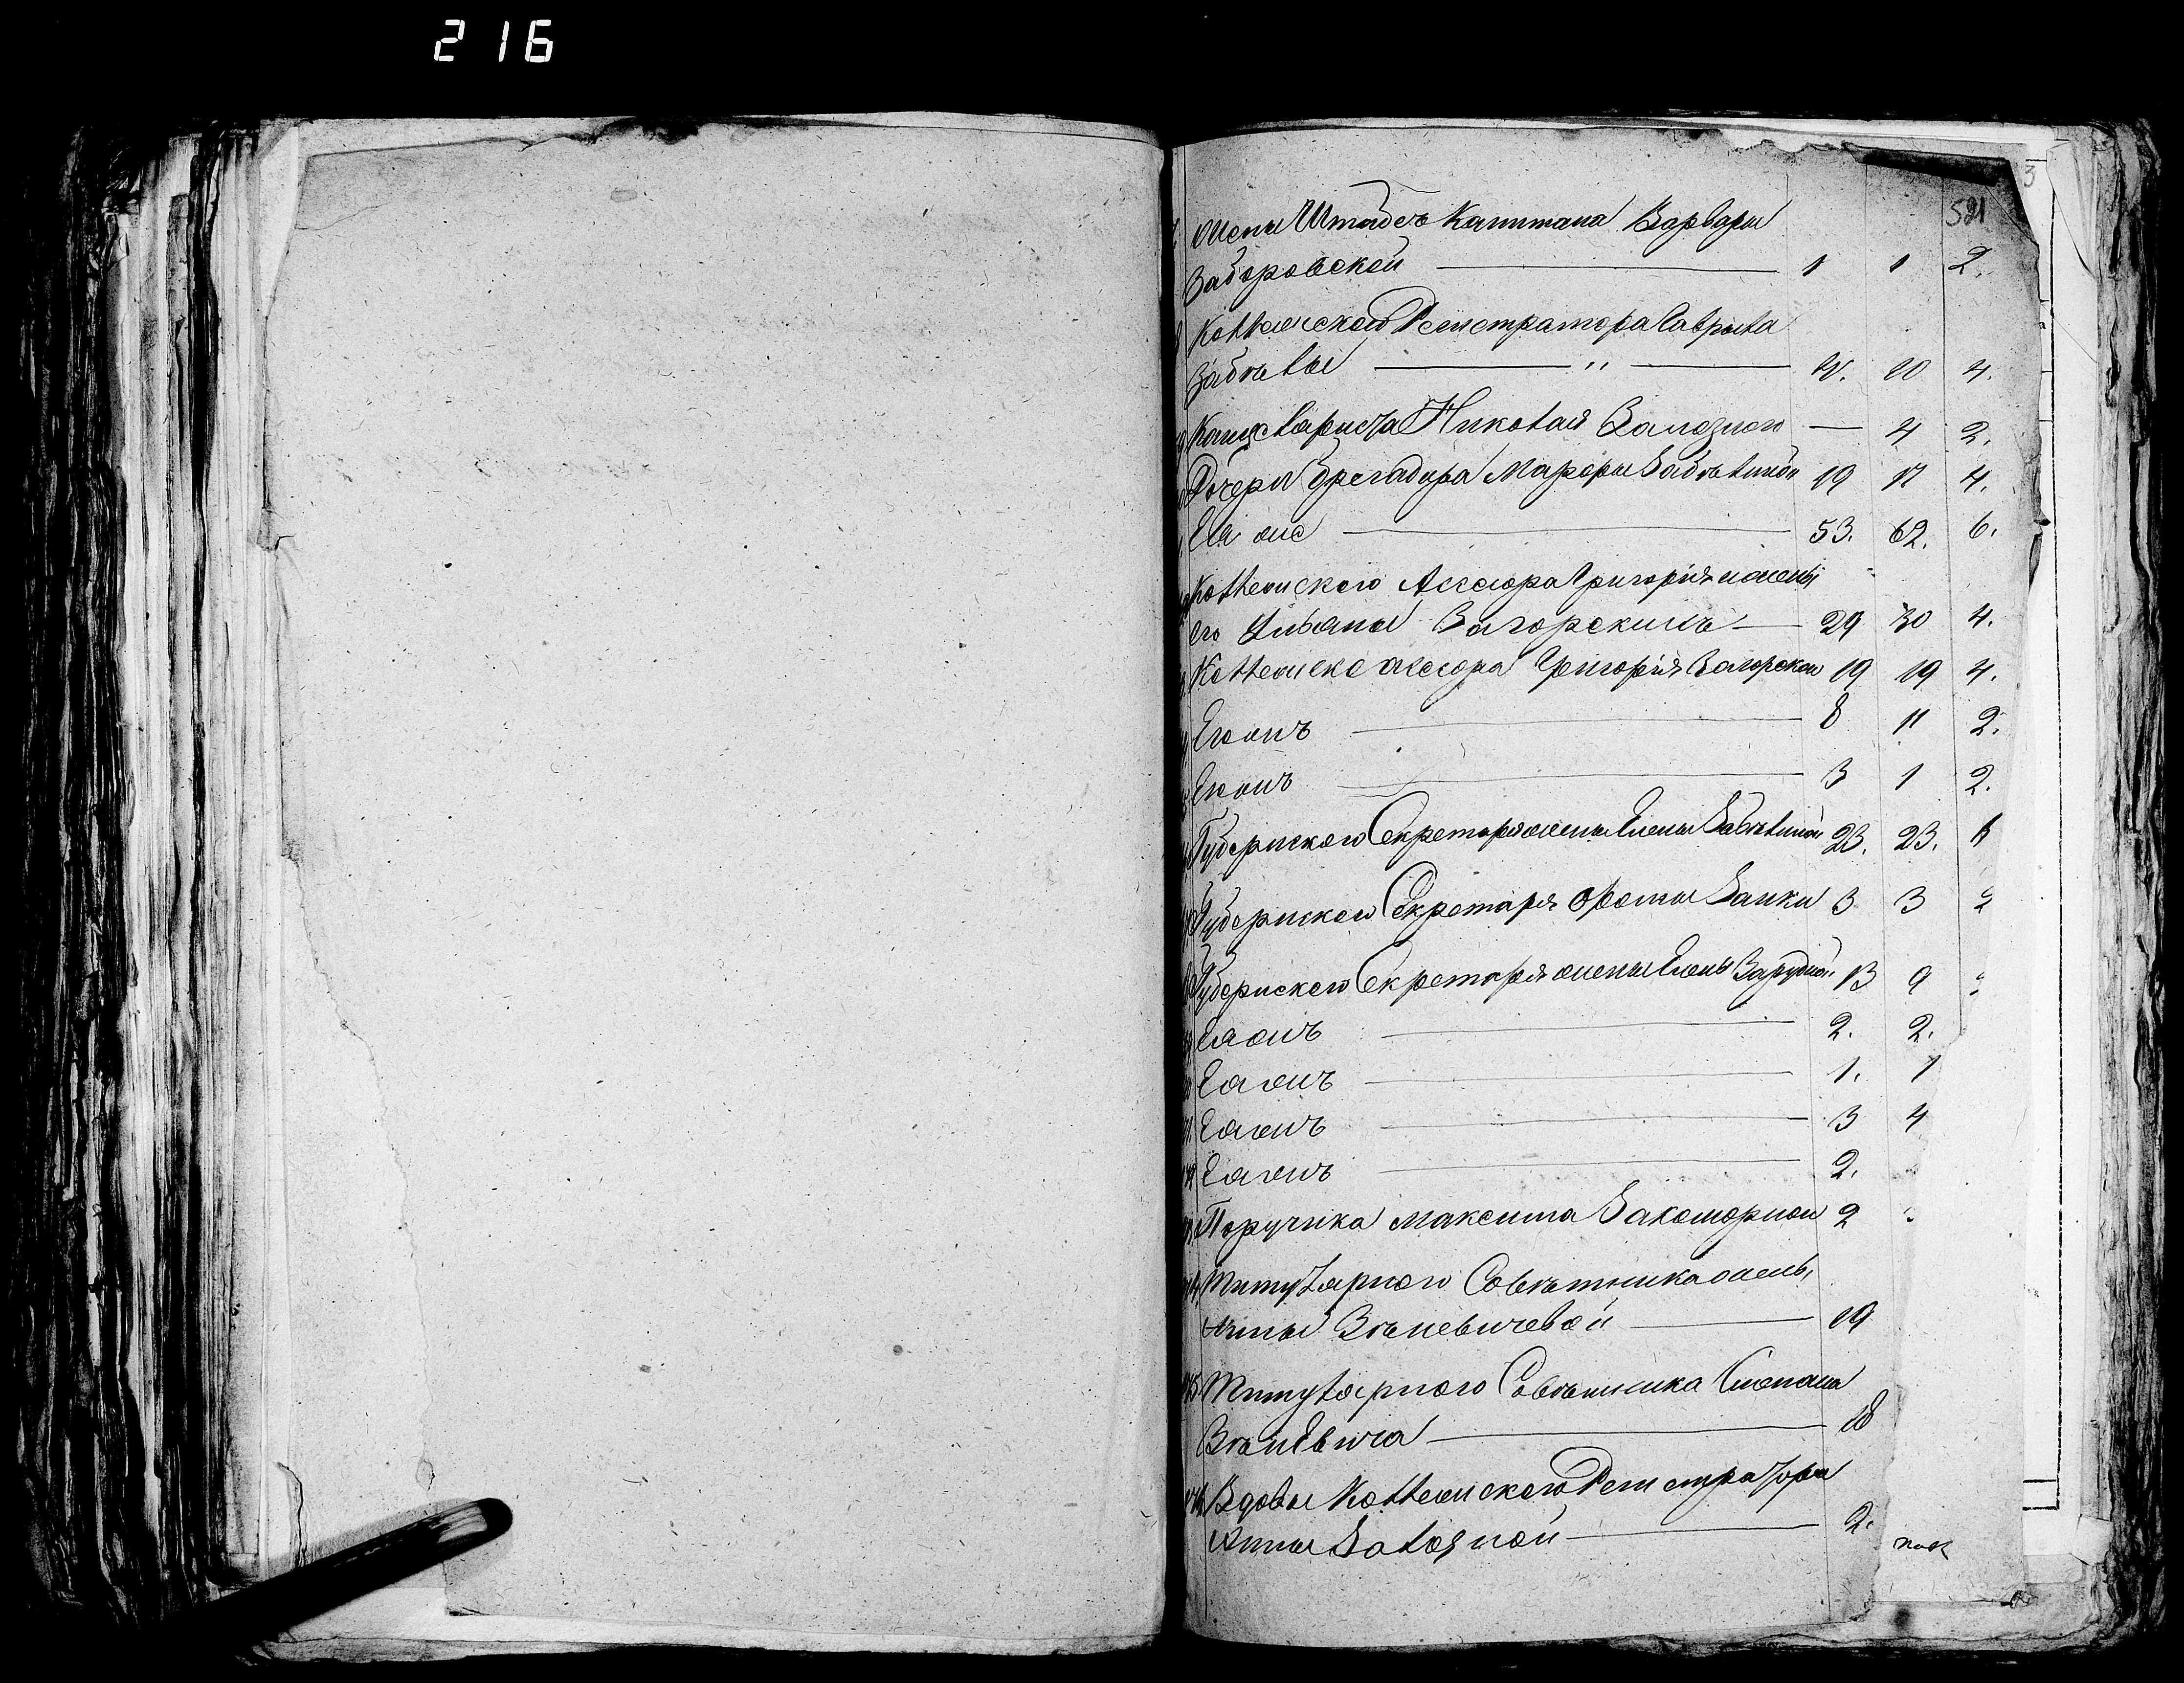 216
3
521
жены Штабсъ Капитана Варвары
Заборовской — 1 1 2.
Коллежского Регистратора Гаврила
Забѣлы — " — 20 4.
Канцеляриста Николая Залозного — 4 2.
Дочери Брегадира Марфы Забѣлиной 19 17 4.
Ея же — 53. 62. 6.
Коллежского Ассесора Григорія и жены
его Ульяны Загорскихъ — 29 30 4.
Коллежско ассесора Григорія Загорского 19 19 4.
Егожъ — 8 11 2.
Егожъ — 3 1 2.
Губернского Секретаря жены Елены Забѣлиной 23. 23.
Губернского Секретаря Фомы Заики 3 3 2
Губернского Секретаря жены Елены Зарудной 13 9
Еяжъ — 2. 2.
Еяжъ — 1. 1
Еяжъ — 3 4
Еяжъ — 2.
Поручика Максима Закоморной 2
Титулярного Совѣтника жены
Анны Зѣневичевой — 19
Титулярного Совѣтника Степана
Зѣневича — 18
Вдовы Коллежского Регистратора
Анны Залозной — 2.